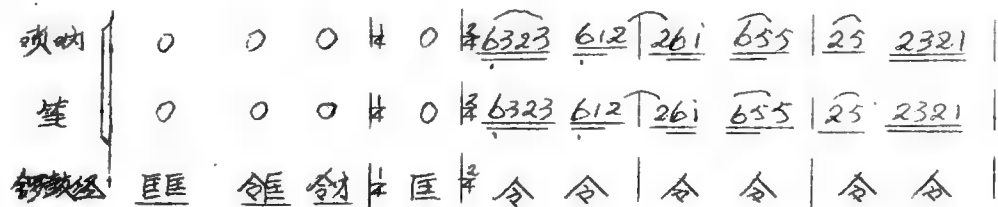 唢呐 0 0 0 1/4 0 2/4 6323 612 | 261 655 | 25 2321 |
笙 0 0 0 1/4 0 2/4 6323 612 | 261 655 | 25 2321 |
锣鼓经 匡匡 令匡 令才 1/4 匡 2/4 令 令 | 令 令 | 令 令 |